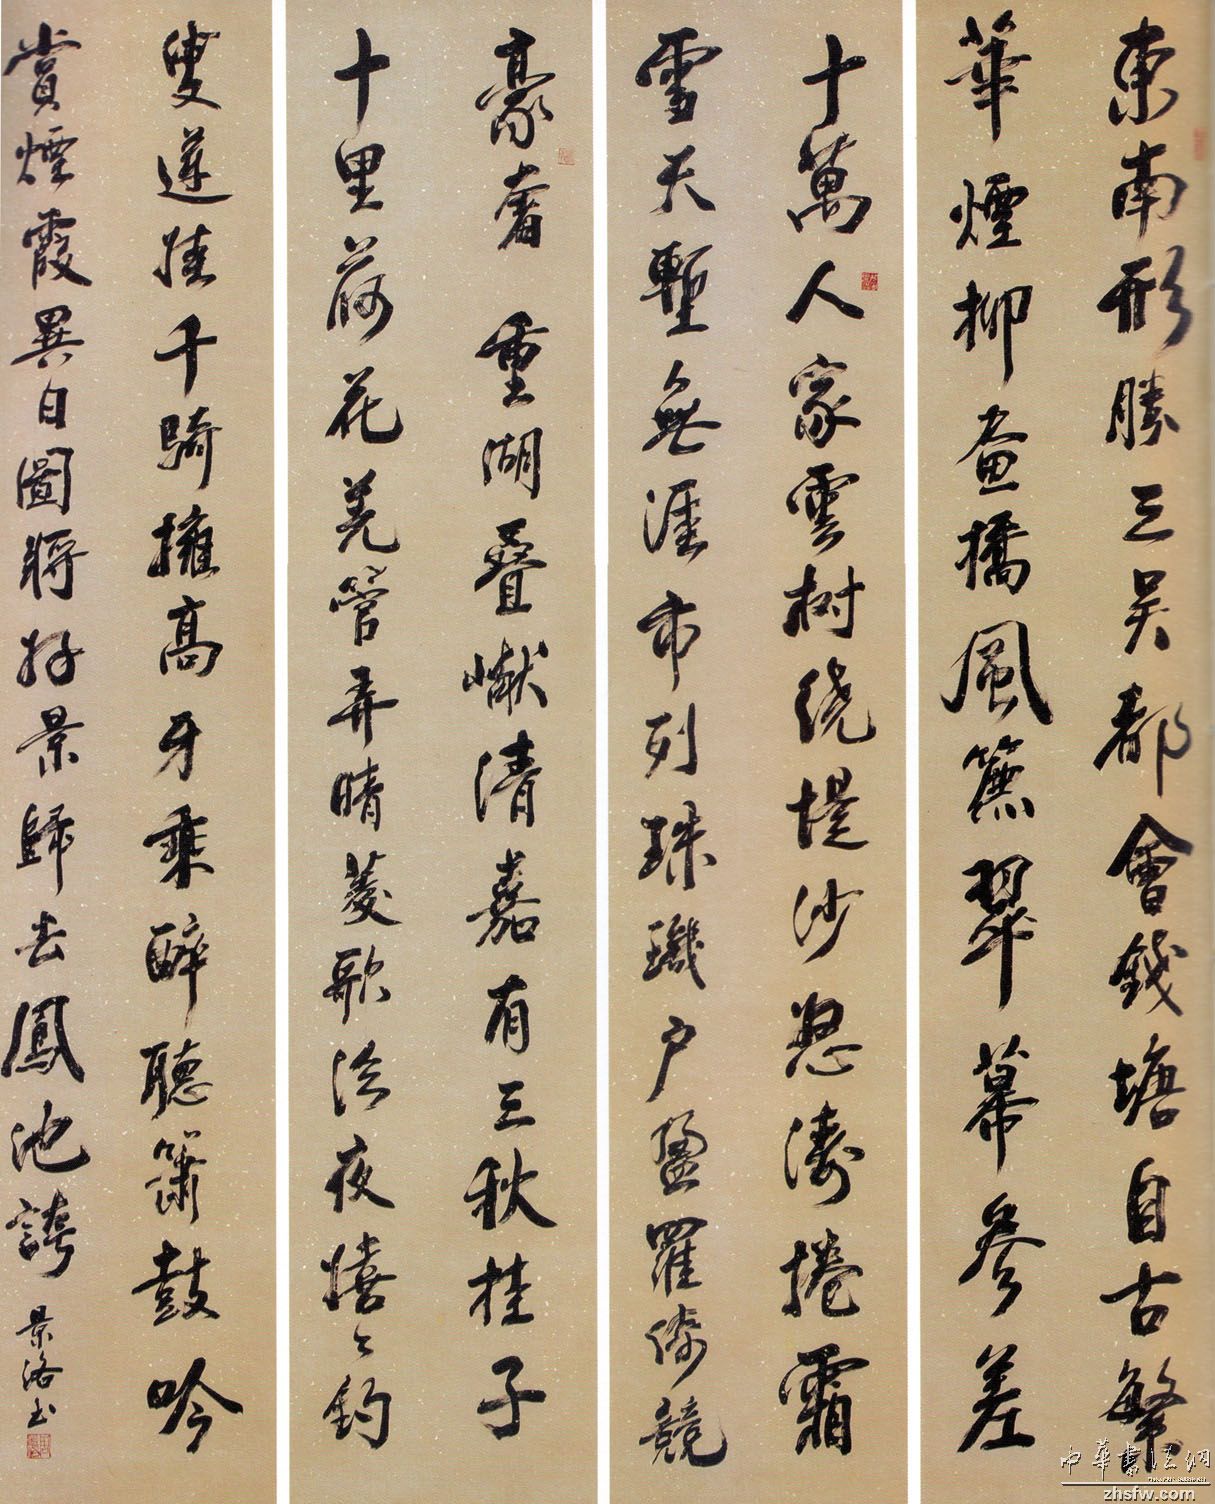 東南形勝三吴都會錢塘自古繁
華煙柳畫橋風簾翠幕參差
十萬人家雲树绕堤沙怒濤捲霜
雪天塹無涯市列珠璣户盈羅綺競
豪奢 重湖叠巘清嘉有三秋桂子
十里荷花羌管弄晴菱歌泛夜嬉々釣
叟蓮娃千騎擁高牙乘醉聽簫鼓吟
賞煙霞異日圖將好景歸去鳳池誇
景洛书
中華書法網
zhsfw.com